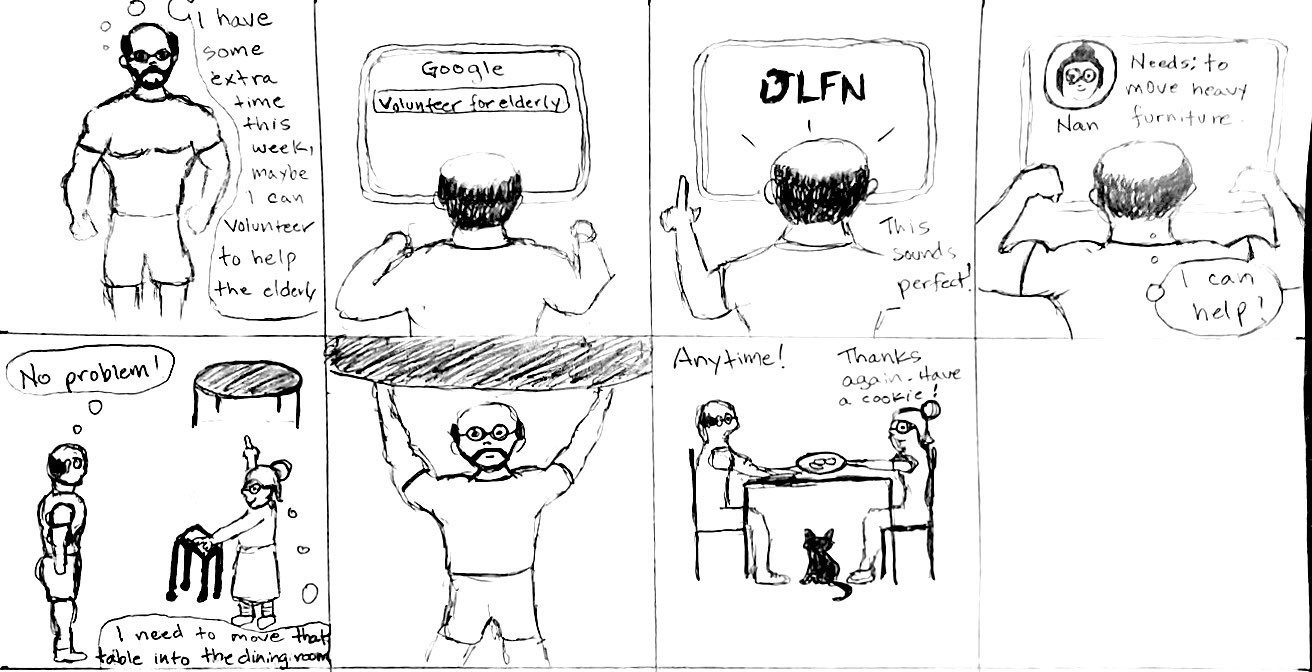 I have
some
extra
time
this
week,
maybe
I can
volunteer
to help
the elderly
Google
Volunteer for elderly
JLFN
This
sounds
perfect!
Needs: to
move heavy
furniture.
Nan
I can
help!
No problem!
I need to move that
table into the dining room
Anytime!
Thanks
again. Have
a cookie!